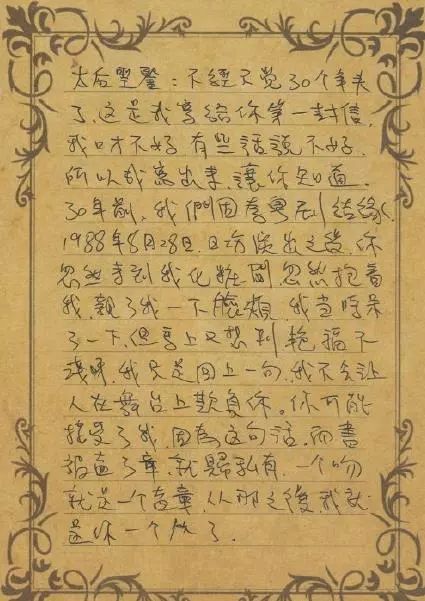 太后聖鑒：不經不覺30个年头
了，这是我寫給你第一封信，
我口才不好，有些話說不好，
所以我寫出來，讓你知道，
30年前，我們因粵劇結緣，
1988年8月28日，日場演出之後，你
忽然來到我化粧間忽然抱着
我，親了我一下臉頰，我当時呆
了一下，但馬上又想到艳福不
淺啊，我只是回上一句，我不会让
人在舞台上欺負你。你可能
接受了我，因為这句话，而盖
了章，就歸私有，一个吻
就是一个盖章，从那之後，我就
是你一个的了。